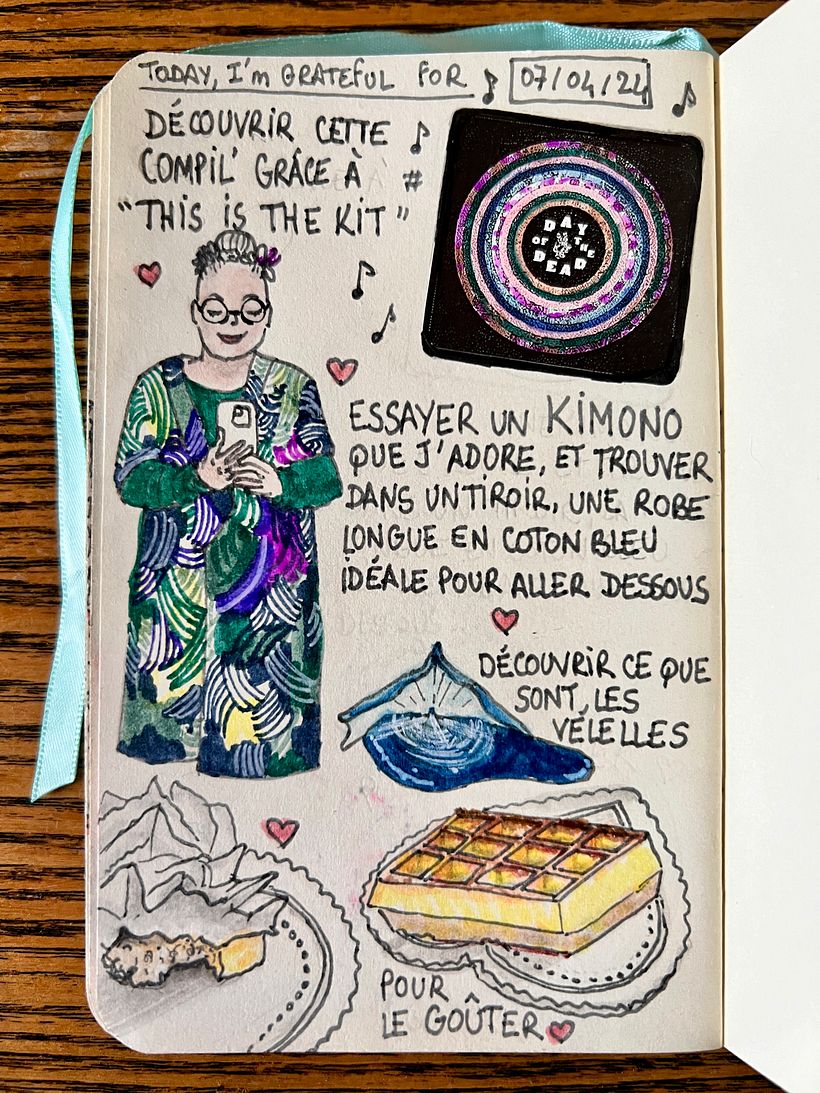 TODAY, I'm GRATEFUL FOR
07/04/24
DÉCOUVRIR CETTE
COMPIL' GRÂCE À
"THIS iS THE KiT"
DAY
OF THE
DEAD
ESSAYER UN KIMONO
QUE J'ADORE, ET TROUVER
DANS UN TIROIR, UNE ROBE
LONGUE EN COTON BLEU
IDÉALE POUR ALLER DESSOUS
DÉCOUVRIR CE QUE
SONT, LES
VÉLELLES
POUR
LE GOÛTER